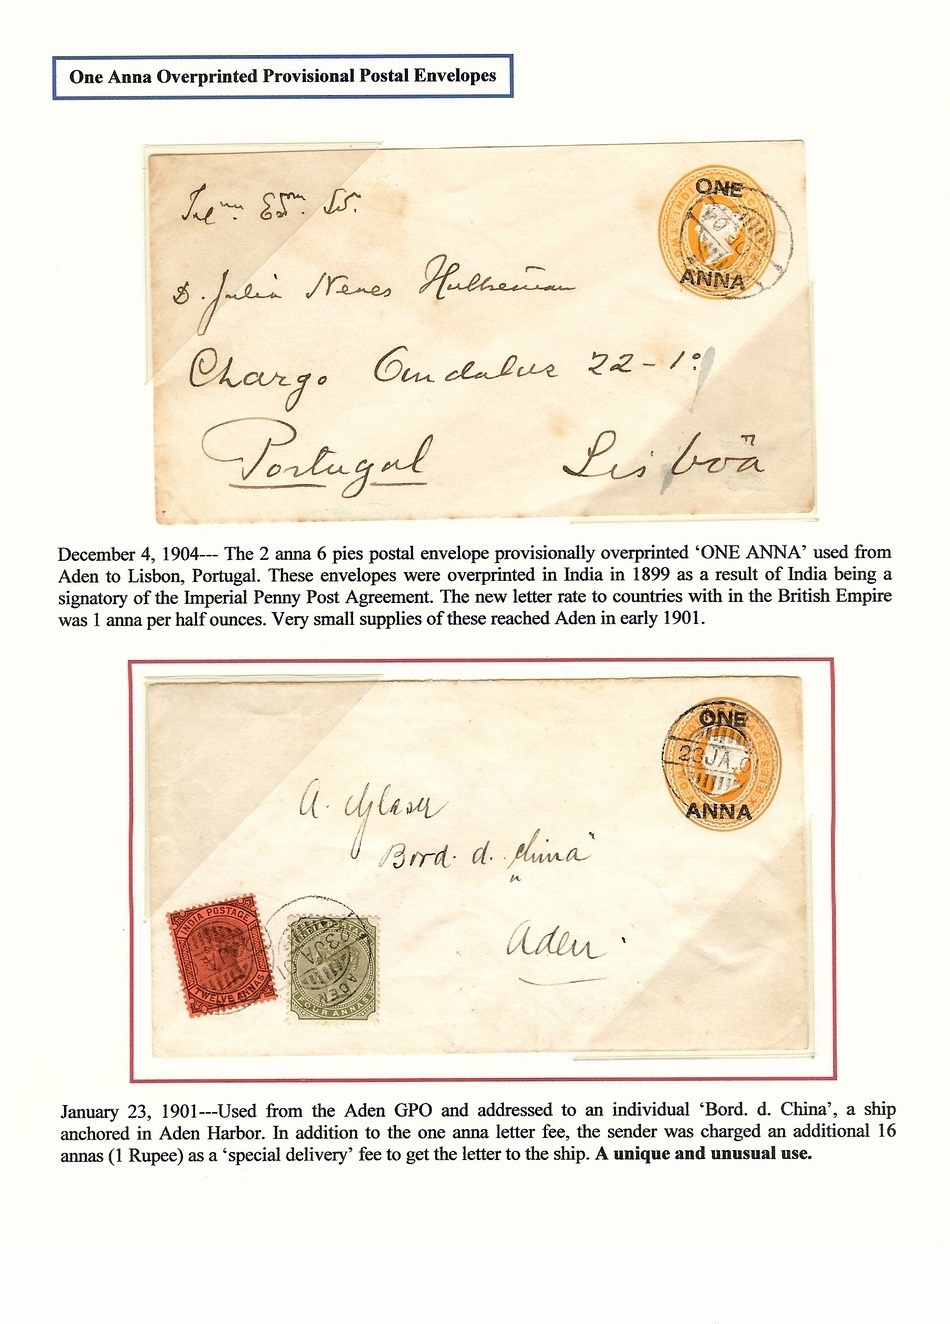 One Anna Overprinted Provisional Postal Envelopes
ONE
ANNA
D. Julia Neves
Chargo Andaluz 22-1º
Portugal Lisbôa
December 4, 1904--- The 2 anna 6 pies postal envelope provisionally overprinted ‘ONE ANNA’ used from
Aden to Lisbon, Portugal. These envelopes were overprinted in India in 1899 as a result of India being a
signatory of the Imperial Penny Post Agreement. The new letter rate to countries with in the British Empire
was 1 anna per half ounces. Very small supplies of these reached Aden in early 1901.
ONE
23JA.0
ANNA
A. Glaser
Bord. d. „China“
Aden.
INDIA POSTAGE
TWELVE ANNAS
INDIA POSTAGE
FOUR ANNAS
ADEN
23JA
01
January 23, 1901---Used from the Aden GPO and addressed to an individual ‘Bord. d. China’, a ship
anchored in Aden Harbor. In addition to the one anna letter fee, the sender was charged an additional 16
annas (1 Rupee) as a ‘special delivery’ fee to get the letter to the ship. A unique and unusual use.